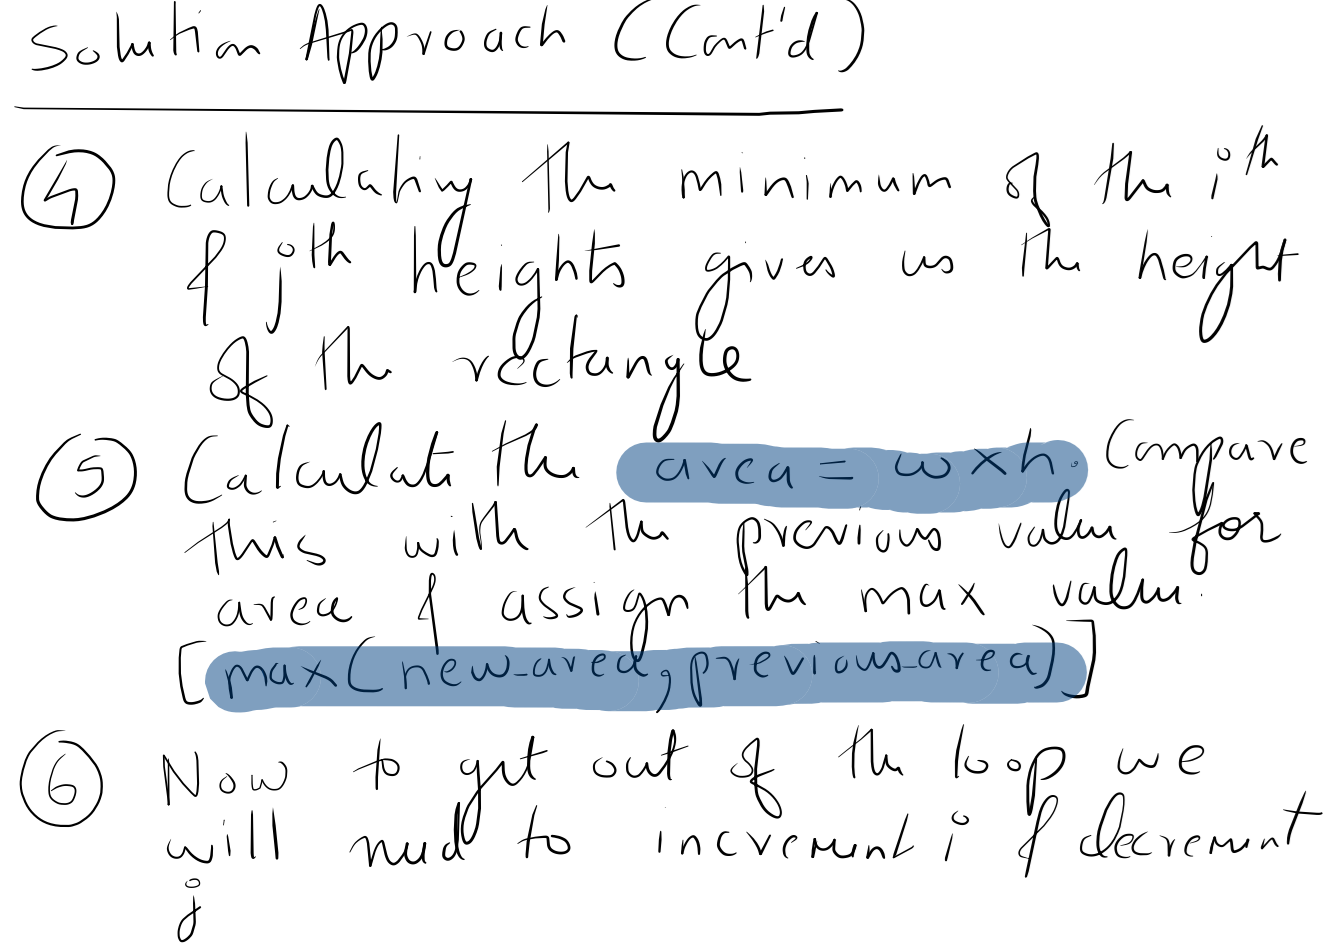 Solution Approach (Cont'd)
④ Calculating the minimum of the ith
& jth heights gives us the height
of the rectangle
⑤ Calculate the area = w x h. Compare
this with the previous value for
area & assign the max value.
[max(new_area, previous_area)]
⑥ Now to get out of the loop we
will need to increment i & decrement
j